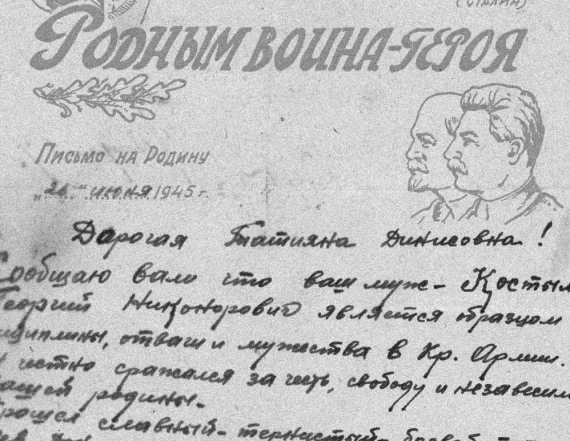 (СТАЛИН)
РОДНЫМ ВОИНА-ГЕРОЯ
Письмо на Родину
„26“ июня 1945 г.
Дорогая Татияна Динисовна!
Сообщаю вам что ваш муж- Костыл
Георгий Никонорович является образцом
дисциплины, отваги и мужества в Кр. Армии.
честно сражался за честь, свободу и независим
нашей родины.
славный- тернистый-